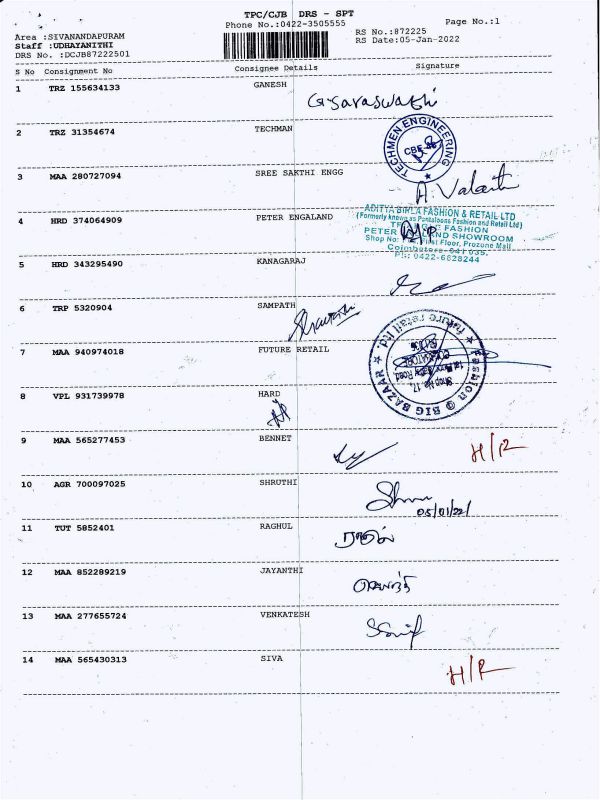 TPC/CJB DRS - SPT
Phone No.:0422-3505555
Page No.:1
Area :SIVANANDAPURAM
RS No.:872225
Staff :UDHAYANITHI
RS Date:05-Jan-2022
DRS No. :DCJB87222501
S No Consignment No Consignee Details Signature
1 TRZ 155634133 GANESH
G. Saraswathi
2 TRZ 31354674 TECHMAN
TECHMEN ENGINEERING
CBE
3 MAA 280727094 SREE SAKTHI ENGG
A.
ADITYA BIRLA FASHION & RETAIL LTD
(Formerly known as Pantaloons Fashion and Retail Ltd)
4 HRD 374064909 PETER ENGALAND
FASHION
PETER SHOWROOM
Shop No: First Floor, Prozone Mall
Coimbatore- 641 035.
Ph: 0422-6628244
5 HRD 343295490 KANAGARAJ
6 TRP 5320904 SAMPATH
7 MAA 940974018 FUTURE RETAIL
future retail ltd.
Fashion @ BIG BAZAAR
Shop No. 17,
8 VPL 931739978 HARD
9 MAA 565277453 BENNET
H/R
10 AGR 700097025 SHRUTHI
05/01/22
11 TUT 5852401 RAGHUL
ராகுல்
12 MAA 852289219 JAYANTHI
ஜெயந்தி
13 MAA 277655724 VENKATESH
14 MAA 565430313 SIVA
H/R